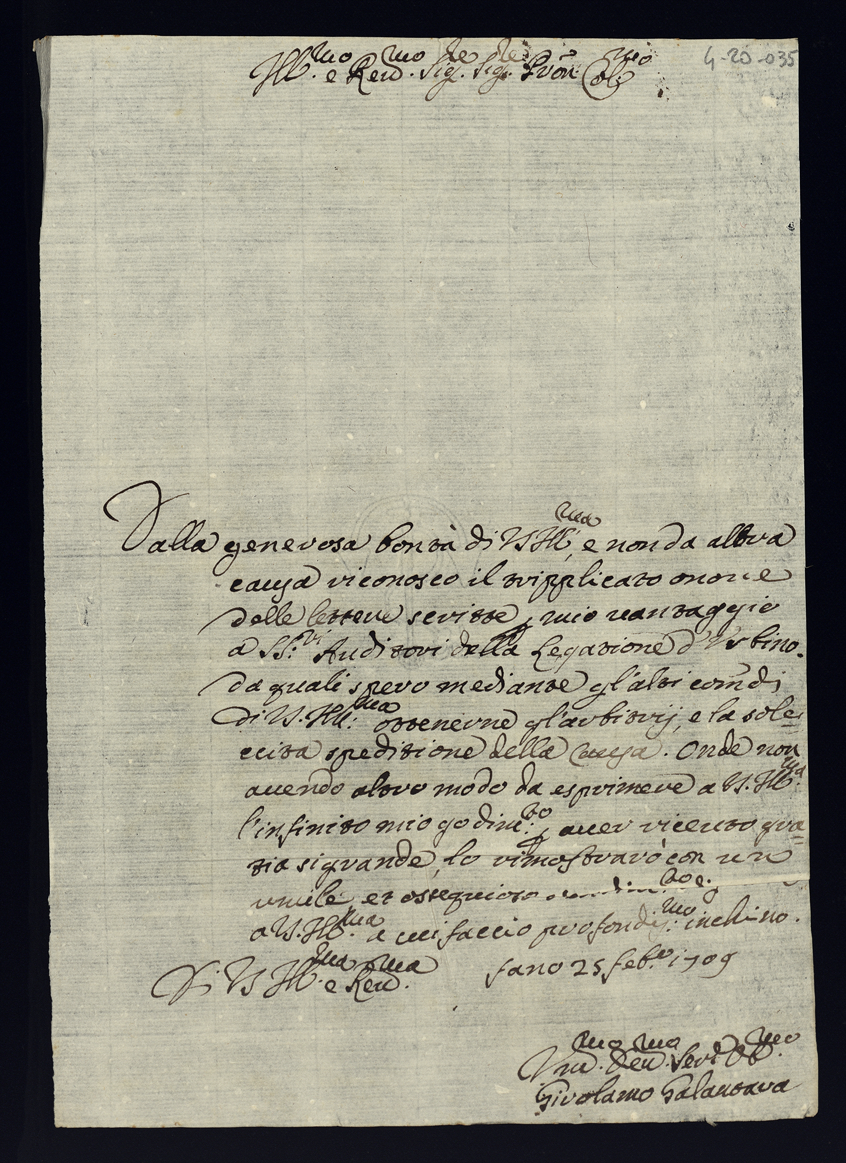 Ill.mo e Rev.mo Sig.re Sig.re Pron Col.mo
4-20-035
Dalla generosa bontà di VS Ill.ma, e non da altra
causa riconosco il tripplicato onore
delle lettere scritte p mio vantaggio
a SS.ri Auditori della Legatione d'Urbino.
da quali spero mediante gl'alti com̃di
di V.S. Ill.ma ottenerne gl'arbitrij, e la sole=
cita speditione della Causa. Onde non
auendo altro modo da esprimere a V.S. Ill.ma
l'infinito mio godim.to p auer riceuto gra=
tia si grande, lo rimostrarò con un
umile, et ossequioso
a V.S. Ill.ma e mi faccio profondis.mo inchino.
Di VS Ill.ma e Rev.ma Fano 25 feb.o 1709
Um.mo Deu.mo Ser.e Ob.mo
Girolamo Galantara